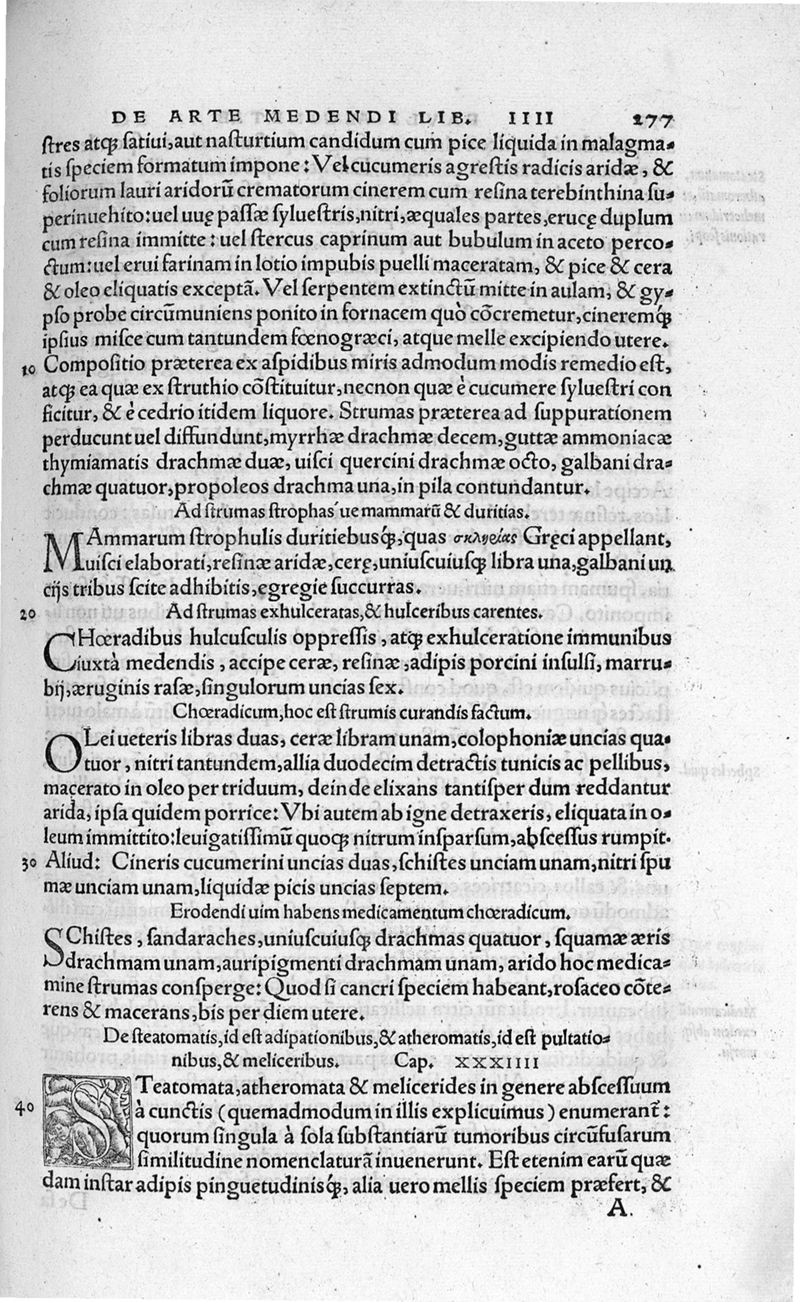 DE ARTE MEDENDI LIB. IIII 277
ſtres atq́ꝫ ſatiui,aut naſturtium candidum cum pice liquida in malagma⸗
tis ſpeciem formatum impone: Vel cucumeris agreſtis radicis aridæ, &
foliorum lauri aridorũ crematorum cinerem cum reſina terebinthina ſu⸗
perinuehito: uel uuę paſſæ ſylueſtris,nitri,æquales partes,erucę duplum
cum reſina immitte: uel ſtercus caprinum aut bubulum in aceto perco⸗
ctum: uel erui farinam in lotio impubis puelli maceratam, & pice & cera
& oleo eliquatis exceptã. Vel ſerpentem extinctũ mitte in aulam, & gy⸗
pſo probe circũmuniens ponito in fornacem quò cõcremetur,cineremq́ꝫ
ipſius miſce cum tantundem fœnogræci, atque melle excipiendo utere.
10 Compoſitio præterea ex aſpidibus miris admodum modis remedio eſt,
atq́ꝫ ea quæ ex ſtruthio cõſtituitur,necnon quæ è cucumere ſylueſtri con
ficitur, & è cedrio itidem liquore. Strumas præterea ad ſuppurationem
perducunt uel diffundunt,myrrhæ drachmæ decem,guttæ ammoniacæ
thymiamatis drachmæ duæ, uiſci quercini drachmæ octo, galbani dra⸗
chmæ quatuor,propoleos drachma una,in pila contundantur.
Ad ſtrumas ſtrophas ́ue mammarũ & duritias.
MAmmarum ſtrophulis duritiebusq́ꝫ, quas Gręci appellant,
uiſci elaborati,reſinæ aridæ,cerę,uniuſcuiuſq́ꝫ libra una,galbani un
cijs tribus ſcite adhibitis,egregie ſuccurras.
20 Ad ſtrumas exhulceratas,& hulceribus carentes.
CHœradibus hulcuſculis oppreſſis, atq́ꝫ exhulceratione immunibus
iuxtà medendis, accipe ceræ, reſinæ, adipis porcini inſulſi, marru⸗
bij,æruginis raſæ,ſingulorum uncias ſex.
Chœradicum,hoc eſt ſtrumis curandis factum.
OLei ueteris libras duas, ceræ libram unam,colophoniæ uncias qua⸗
tuor, nitri tantundem,allia duodecim detractis tunicis ac pellibus,
macerato in oleo per triduum, deinde elixans tantiſper dum reddantur
arida, ipſa quidem porrice: Vbi autem ab igne detraxeris, eliquata in o⸗
leum immittito: leuigatiſſimũ quoq́ꝫ nitrum inſparſum,abſceſſus rumpit.
30 Aliud: Cineris cucumerini uncias duas,ſchiſtes unciam unam,nitri ſpu
mæ unciam unam,liquidæ picis uncias ſeptem.
Erodendi uim habens medicamentum chœradicum.
SChiſtes, ſandaraches,uniuſcuiuſq́ꝫ drachmas quatuor, ſquamæ æris
drachmam unam,auripigmenti drachmam unam, arido hoc medica⸗
mine ſtrumas conſperge: Quod ſi cancri ſpeciem habeant,roſaceo cõte⸗
rens & macerans,bis per diem utere.
De ſteatomatis,id eſt adipationibus,& atheromatis,id eſt pultatio⸗
nibus,& meliceribus. Cap. XXXIIII
STeatomata,atheromata & melicerides in genere abſceſſuum
40 à cunctis (quemadmodum in illis explicuimus) enumerant̃:
quorum ſingula à ſola ſubſtantiarũ tumoribus circũfuſarum
ſimilitudine nomenclaturã inuenerunt. Eſt etenim earũ quæ
dam inſtar adipis pinguetudinisq́ꝫ, alia uero mellis ſpeciem præfert, &
A.